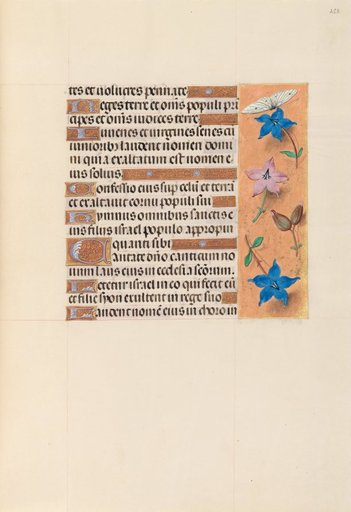 tes et volucres pennate
Reges terre et om̄s populi pri
cipes et om̄s iudices terre
Iuuenes et virgines senes cū
iunioribus laudent nomen domi
ni quia exaltatum est nomen e
ius solius
Confessio eius sup celū et terrā
et exaltauit cornu populi sui
Hymnus omnibus sanctis e
ius filiis israel populo appropin
quanti sibi
Cantate dn̄o canticum no
uum laus eius in ecclesia scōrum.
Letetur israel in eo qui fecit eū
et filie syon exultent in rege suo
Laudent nomē eius in choro in